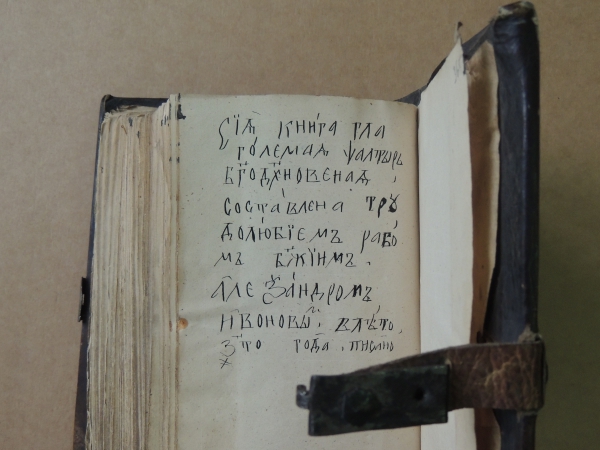 Сїѧ книга гла
големаѧ ѱалтырь
бг҃одх҃новенаѧ,
составлена трꙋ
долюбїемъ рабо
мъ бж҃їимъ.
але༯андромъ
Ивоновы. влѣто,
то года. писано